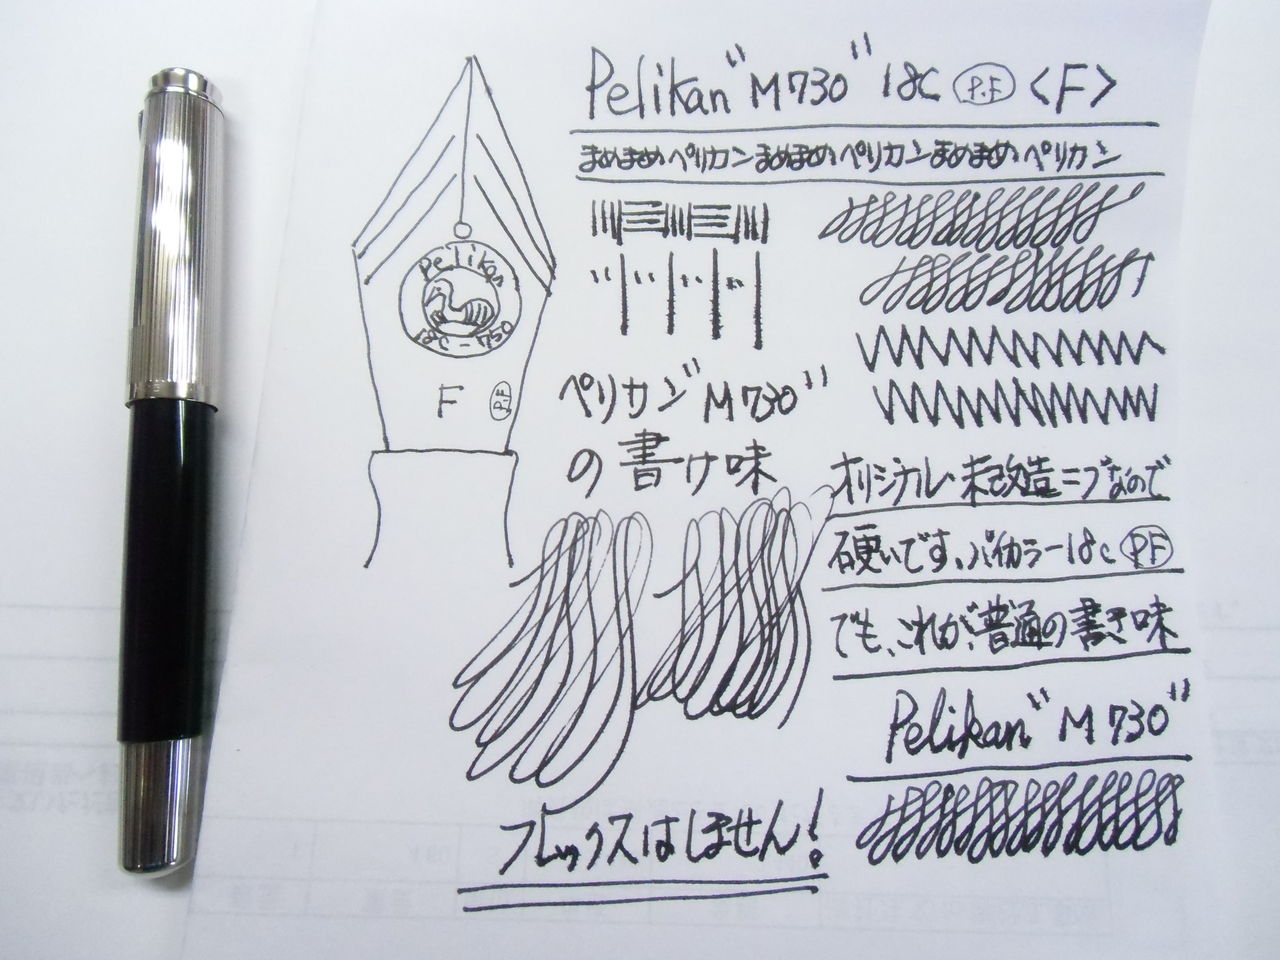 Pelikan "M730" 18C P.F <F>
まめまめペリカンまめまめペリカンまめまめペリカン
Pelikan
18C-750
F P.F
ペリカン"M730"
の書け味
オリジナル未改造ニブなので
硬いです、バイカラー18C PF
でも、これが、普通の書き味
Pelikan "M730"
フレックスはしません!